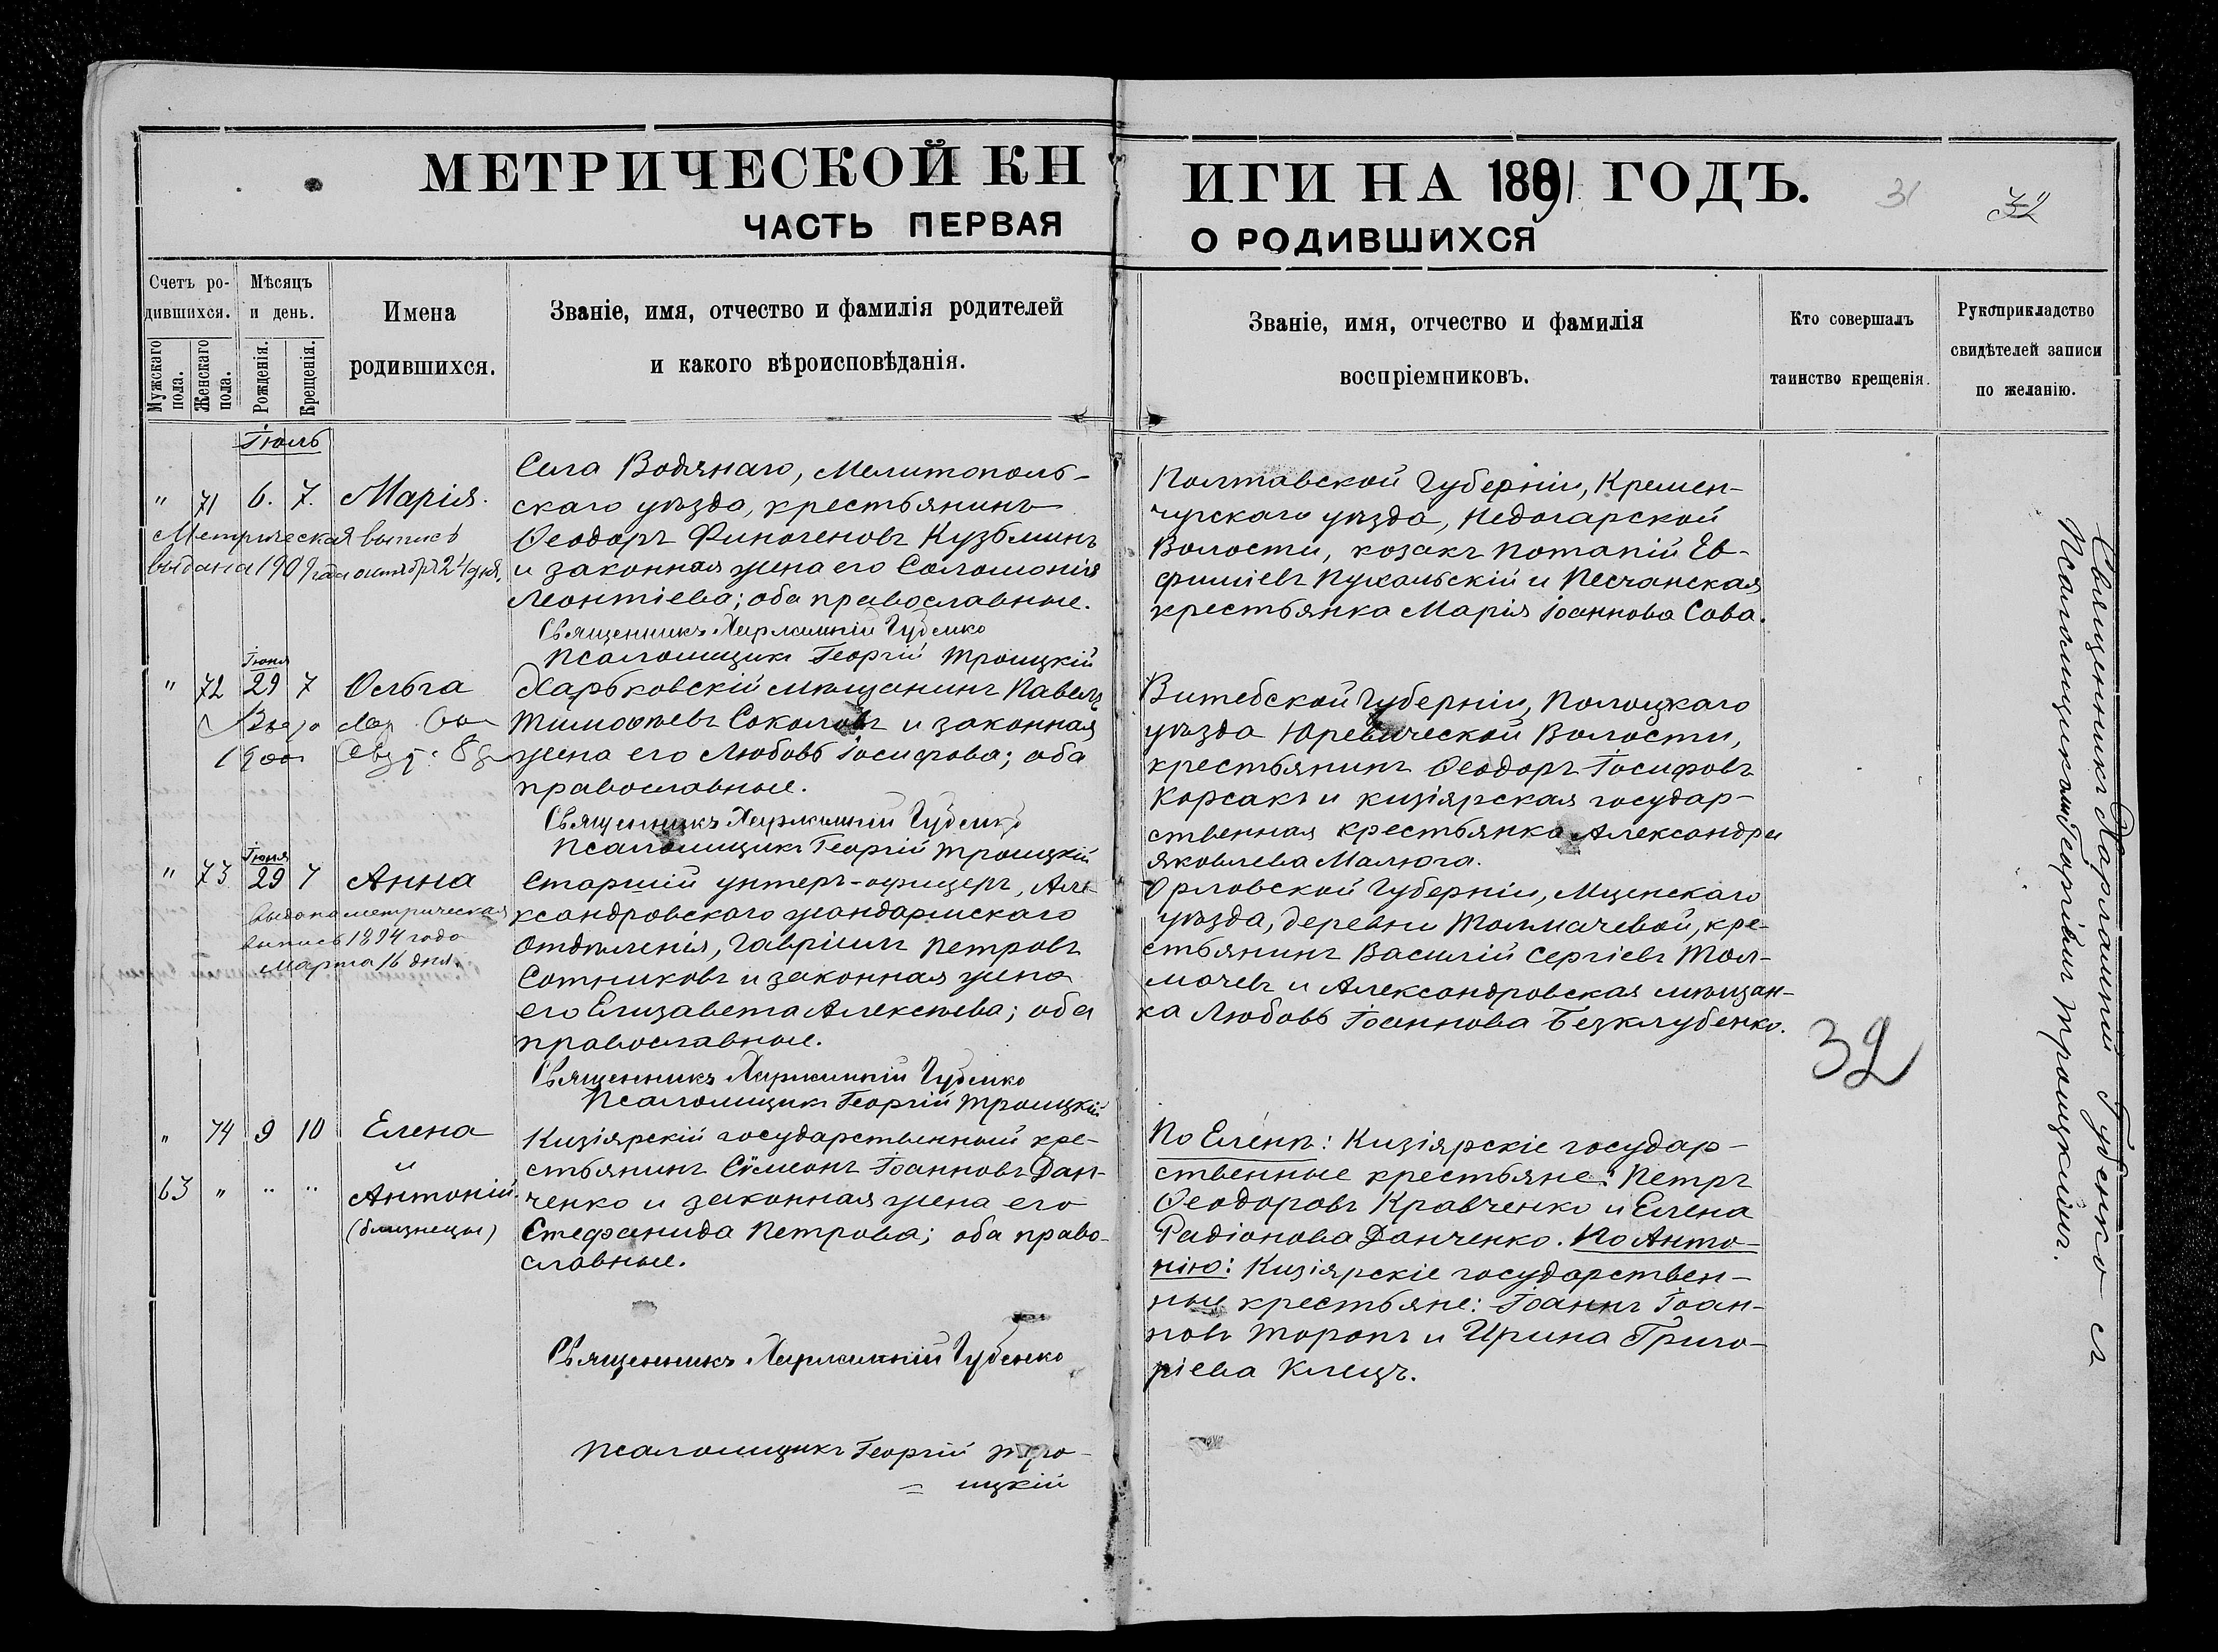 МЕТРИЧЕСКОЙ КНИГИ НА 1891 ГОДЪ.
31
32
ЧАСТЬ ПЕРВАЯ О РОДИВШИХСЯ
Счетъ ро-
дившихся.
Мужскаго пола.
Женскаго пола.
Мѣсяцъ
и день.
Рожденія.
Крещенія.
Имена
родившихся.
Званіе, имя, отчество и фамилія родителей
и какого вѣроисповѣданія.
Званіе, имя, отчество и фамилія
воспріемниковъ.
Кто совершалъ
таинство крещенія.
Рукоприкладство
свидѣтелей записи
по желанію.
Іюль
" 71 6. 7. Марія.
Метрическая выпись
выдана 1909 года октября 24 дня.
Села Водянаго, Мелитополь-
скаго уѣзда, крестьянинъ
Ѳеодоръ Финогеновъ Кузьминъ
и законная жена его Соломонія
Леонтіева; оба православные.
Священникъ Харлампій Губенко
Псаломщикъ Георгій Троицкій
Полтавской Губерніи, Кремен-
чугскаго уѣзда, Недогарской
Волости, козакъ Потапій Ев-
фиміевъ Пужальскій и Песчанская
крестьянка Марія Іоаннова Сова.
Іюня
" 72 29 7 Ольга
1900
Харьковскій мѣщанинъ Павелъ
Тимоѳеевъ Соколовъ и законная
жена его Любовь Іосифова; оба
православные.
Священникъ Харлампій Губенко
Псаломщикъ Георгій Троицкій
Витебской Губерніи, Полоцкаго
уѣзда Юревической Волости,
крестьянинъ Ѳеодоръ Іосифовъ
Корсакъ и кизіярская государ-
ственная крестьянка Александра
Яковлева Малюга.
Іюня
" 73 29 7 Анна
Выдана метрическая
выпись 1894 года
Марта 16 дня.
Старшій унтеръ-офицеръ, Але-
ксандровскаго жандармскаго
отдѣленія, Гавріилъ Петровъ
Сотниковъ и законная жена
его Елизавета Алексѣева; оба
православные.
Священникъ Харлампій Губенко
Псаломщикъ Георгій Троицкій
Орловской Губерніи, Мценскаго
уѣзда, деревни Толмачевой, кре-
стьянинъ Василій Сергіевъ Тол-
мачевъ и Александровская мѣщан-
ка Любовь Іоаннова Безклубенко.
32
" 74 9 10 Елена
и
63 " " " Антоній.
(близнецы)
Кизіярскій государственный кре-
стьянинъ Сѵмеонъ Іоанновъ Дан-
ченко и законная жена его
Стефанида Петрова; оба право-
славные.
Священникъ Харлампій Губенко
Псаломщикъ Георгій Тро-
ицкій
По Еленѣ: Кизіярскіе государ-
ственные крестьяне: Петръ
Ѳеодоровъ Кравченко и Елена
Радіонова Данченко. По Анто-
нію: Кизіярскіе государствен-
ные крестьяне: Іоаннъ Іоан-
новъ Торопъ и Ирина Григо-
ріева Клецъ.
Священникъ Харлампій Губенко съ
Псаломщикомъ Георгіемъ Троицкимъ.